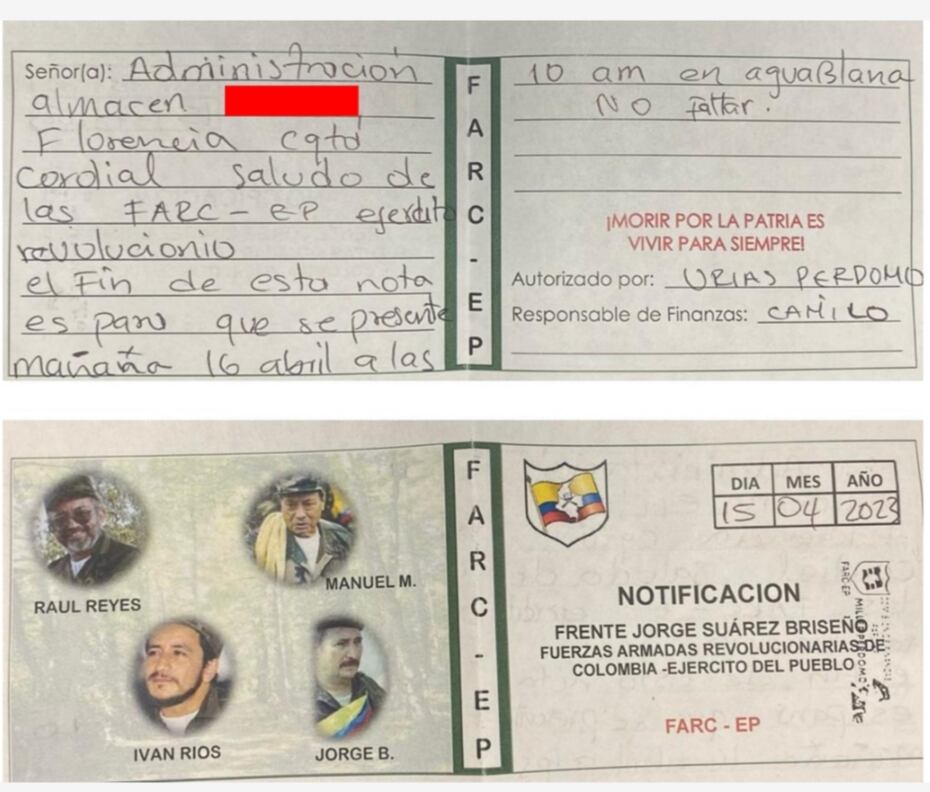 Señor(a): Administración
almacen
Florencia cqtd
Cordial saludo de
las FARC-EP ejercito
revolucionio
el Fin de esta nota
es para que se presente
mañaña 16 abril a las
FARC-EP
10 am en aguaBlana
NO faltar.
¡MORIR POR LA PATRIA ES
VIVIR PARA SIEMPRE!
Autorizado por: URIAS PERDOMO
Responsable de Finanzas: CAMILO
RAUL REYES
MANUEL M.
IVAN RIOS
JORGE B.
FARC-EP
DIA MES AÑO
15 04 2023
NOTIFICACION
FRENTE JORGE SUÁREZ BRISEÑO
FUERZAS ARMADAS REVOLUCIONARIAS DE
COLOMBIA -EJERCITO DEL PUEBLO
FARC - EP
FARC-EP